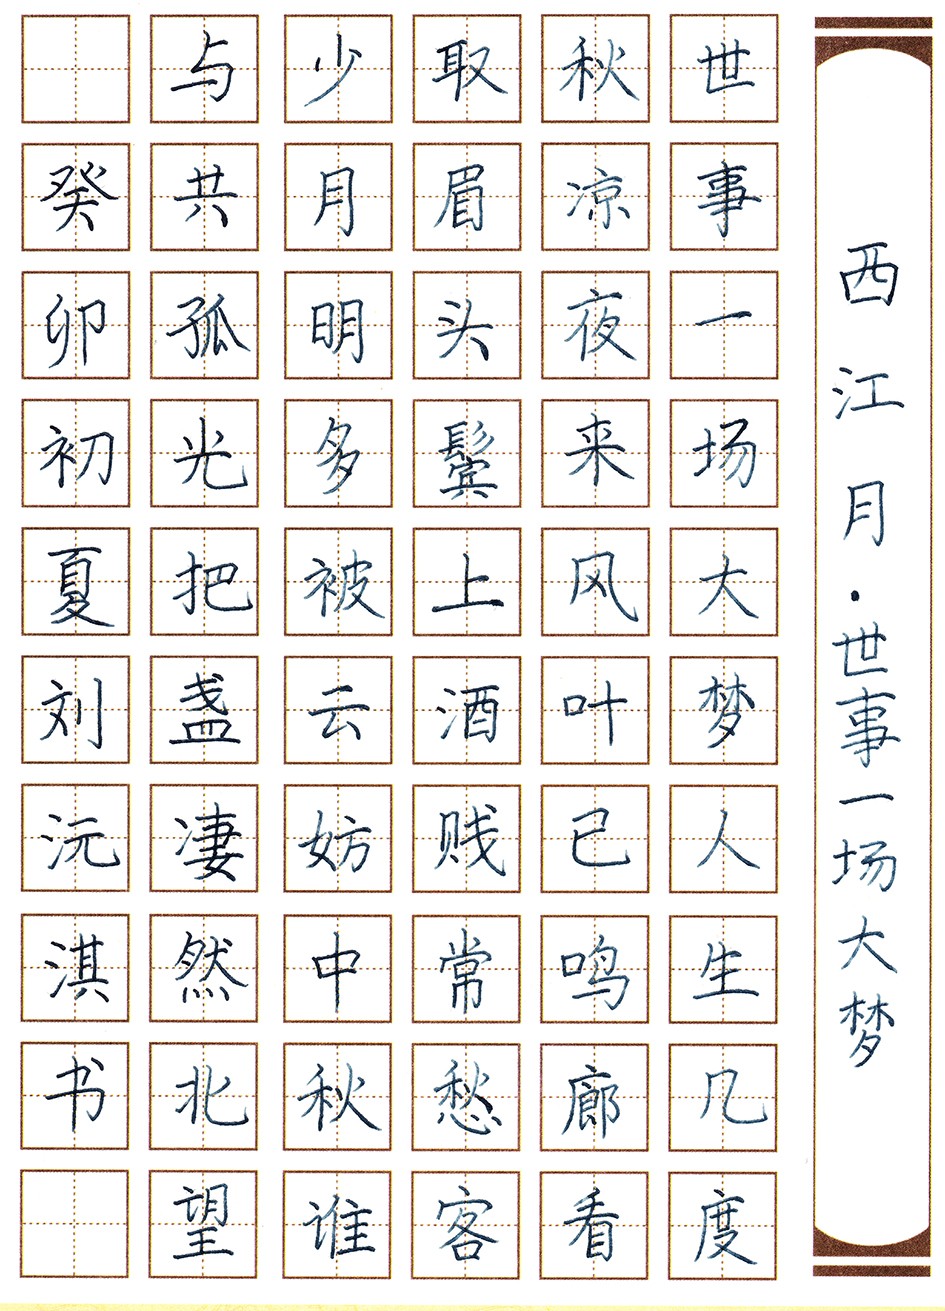 西江月·世事一场大梦
世事一场大梦人生几度
秋凉夜来风叶已鸣廊看
取眉头鬓上酒贱常愁客
少月明多被云妨中秋谁
与共孤光把盏凄然北望
癸卯初夏刘沅淇书